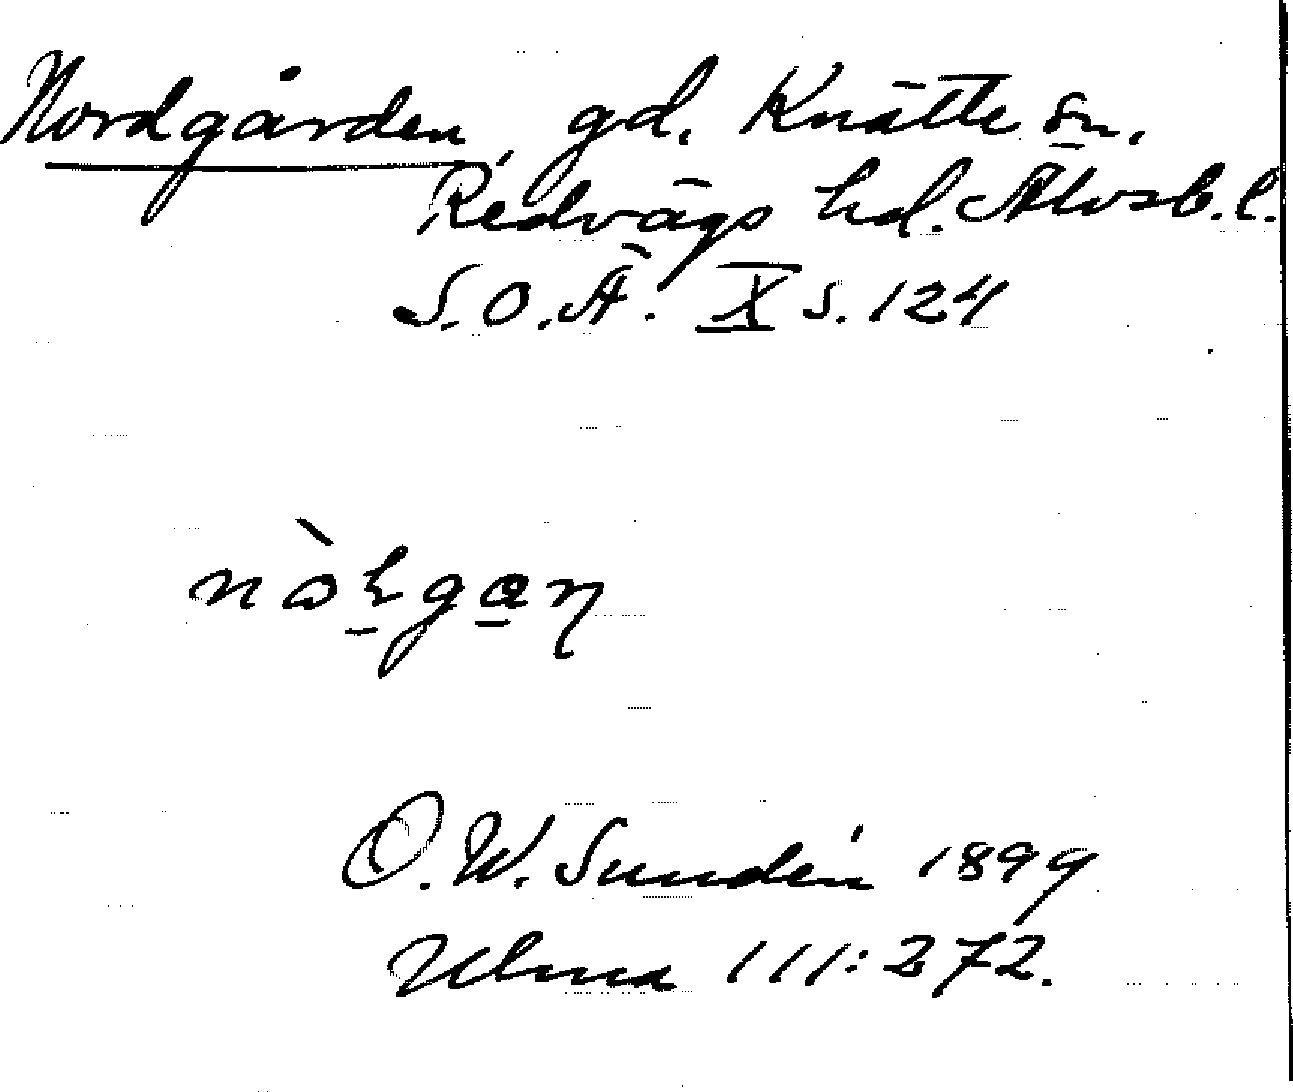 Nordgården, gd. Knätte sn.
Redvägs hd. Älvsb. l.
S.O.Ä. X s. 124
O.W. Sundén 1899
Ulma 111:272.